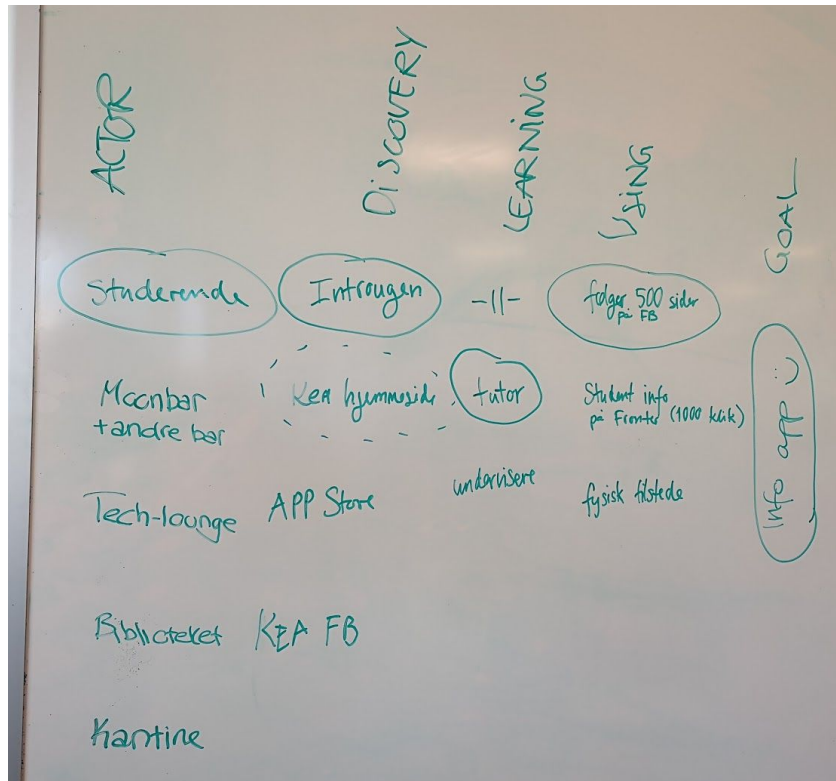 ACTOR
DISCOVERY
LEARNING
USING
GOAL
Studerende
Introugen
-||-
følger 500 sider
på FB
Moonbar
+andre bar
Kea hjemmeside
tutor
Student info
på Fronter (1000 klik)
Tech-lounge
APP Store
undervisere
fysisk tilstede
Info app :)
Biblioteket
KEA FB
Kantine